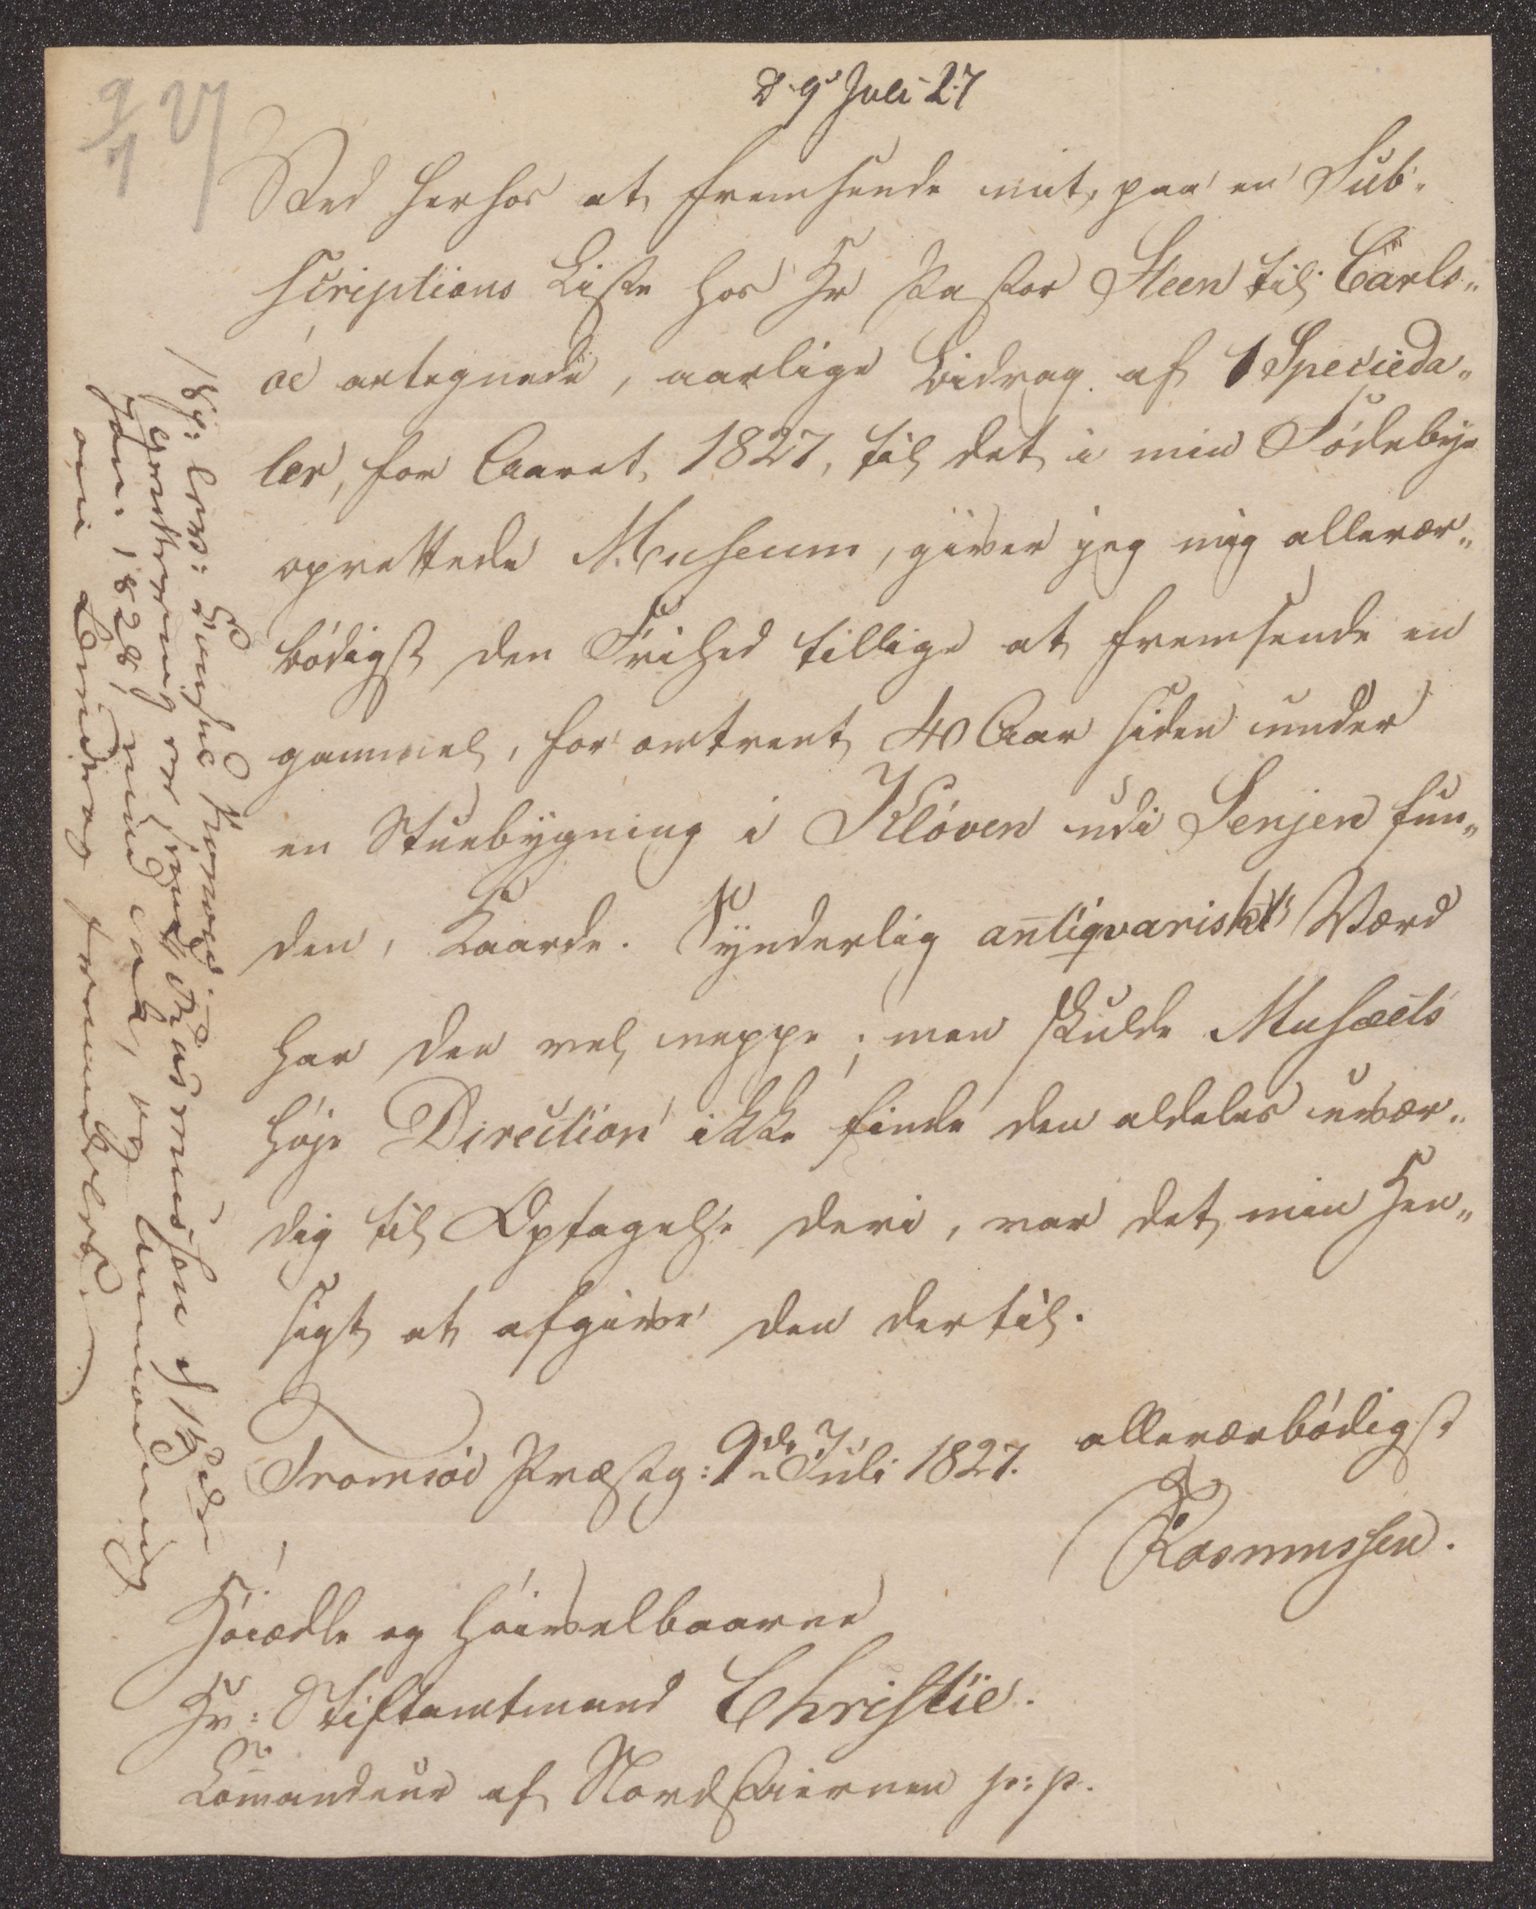 d. 9de Juli 27
9/7 27
Ved herhos at fremsende mit, paa en Sub-
scriptions Liste hos Hr Pastor Steen til Carls-
øe antegnede, aarlige Bidrag af 1 Specieda-
ler, for Aaret 1827, til det i min Födebye
oprettede Museum, giver jeg mig allerær-
bödigst den Frihed tillige at fremsende en
gammel, for omtrent 40 Aar siden under
en Stuebygning i Klöven udi Senjen fun-
den, Kaarde. Synderlig antiqvariskt Værd
har den vel neppe; men skulde Musæets
höje Direction ikke finde den aldeles uvær-
dig til Optagelse deri, var det min Hen-
sigt at afgive den dertil.
Tromsöe Præstg: 9de Juli 1827.
allerærbödigst
Rasmussen.
Höiædle og Höivelbaarne
Hr: Stiftamtmand Christie.
Comandeur af Nordstiernen p: p.
Rasmussen
Jan: 1828, med Tak, og Anmodning
om Bidrag fremdeles.